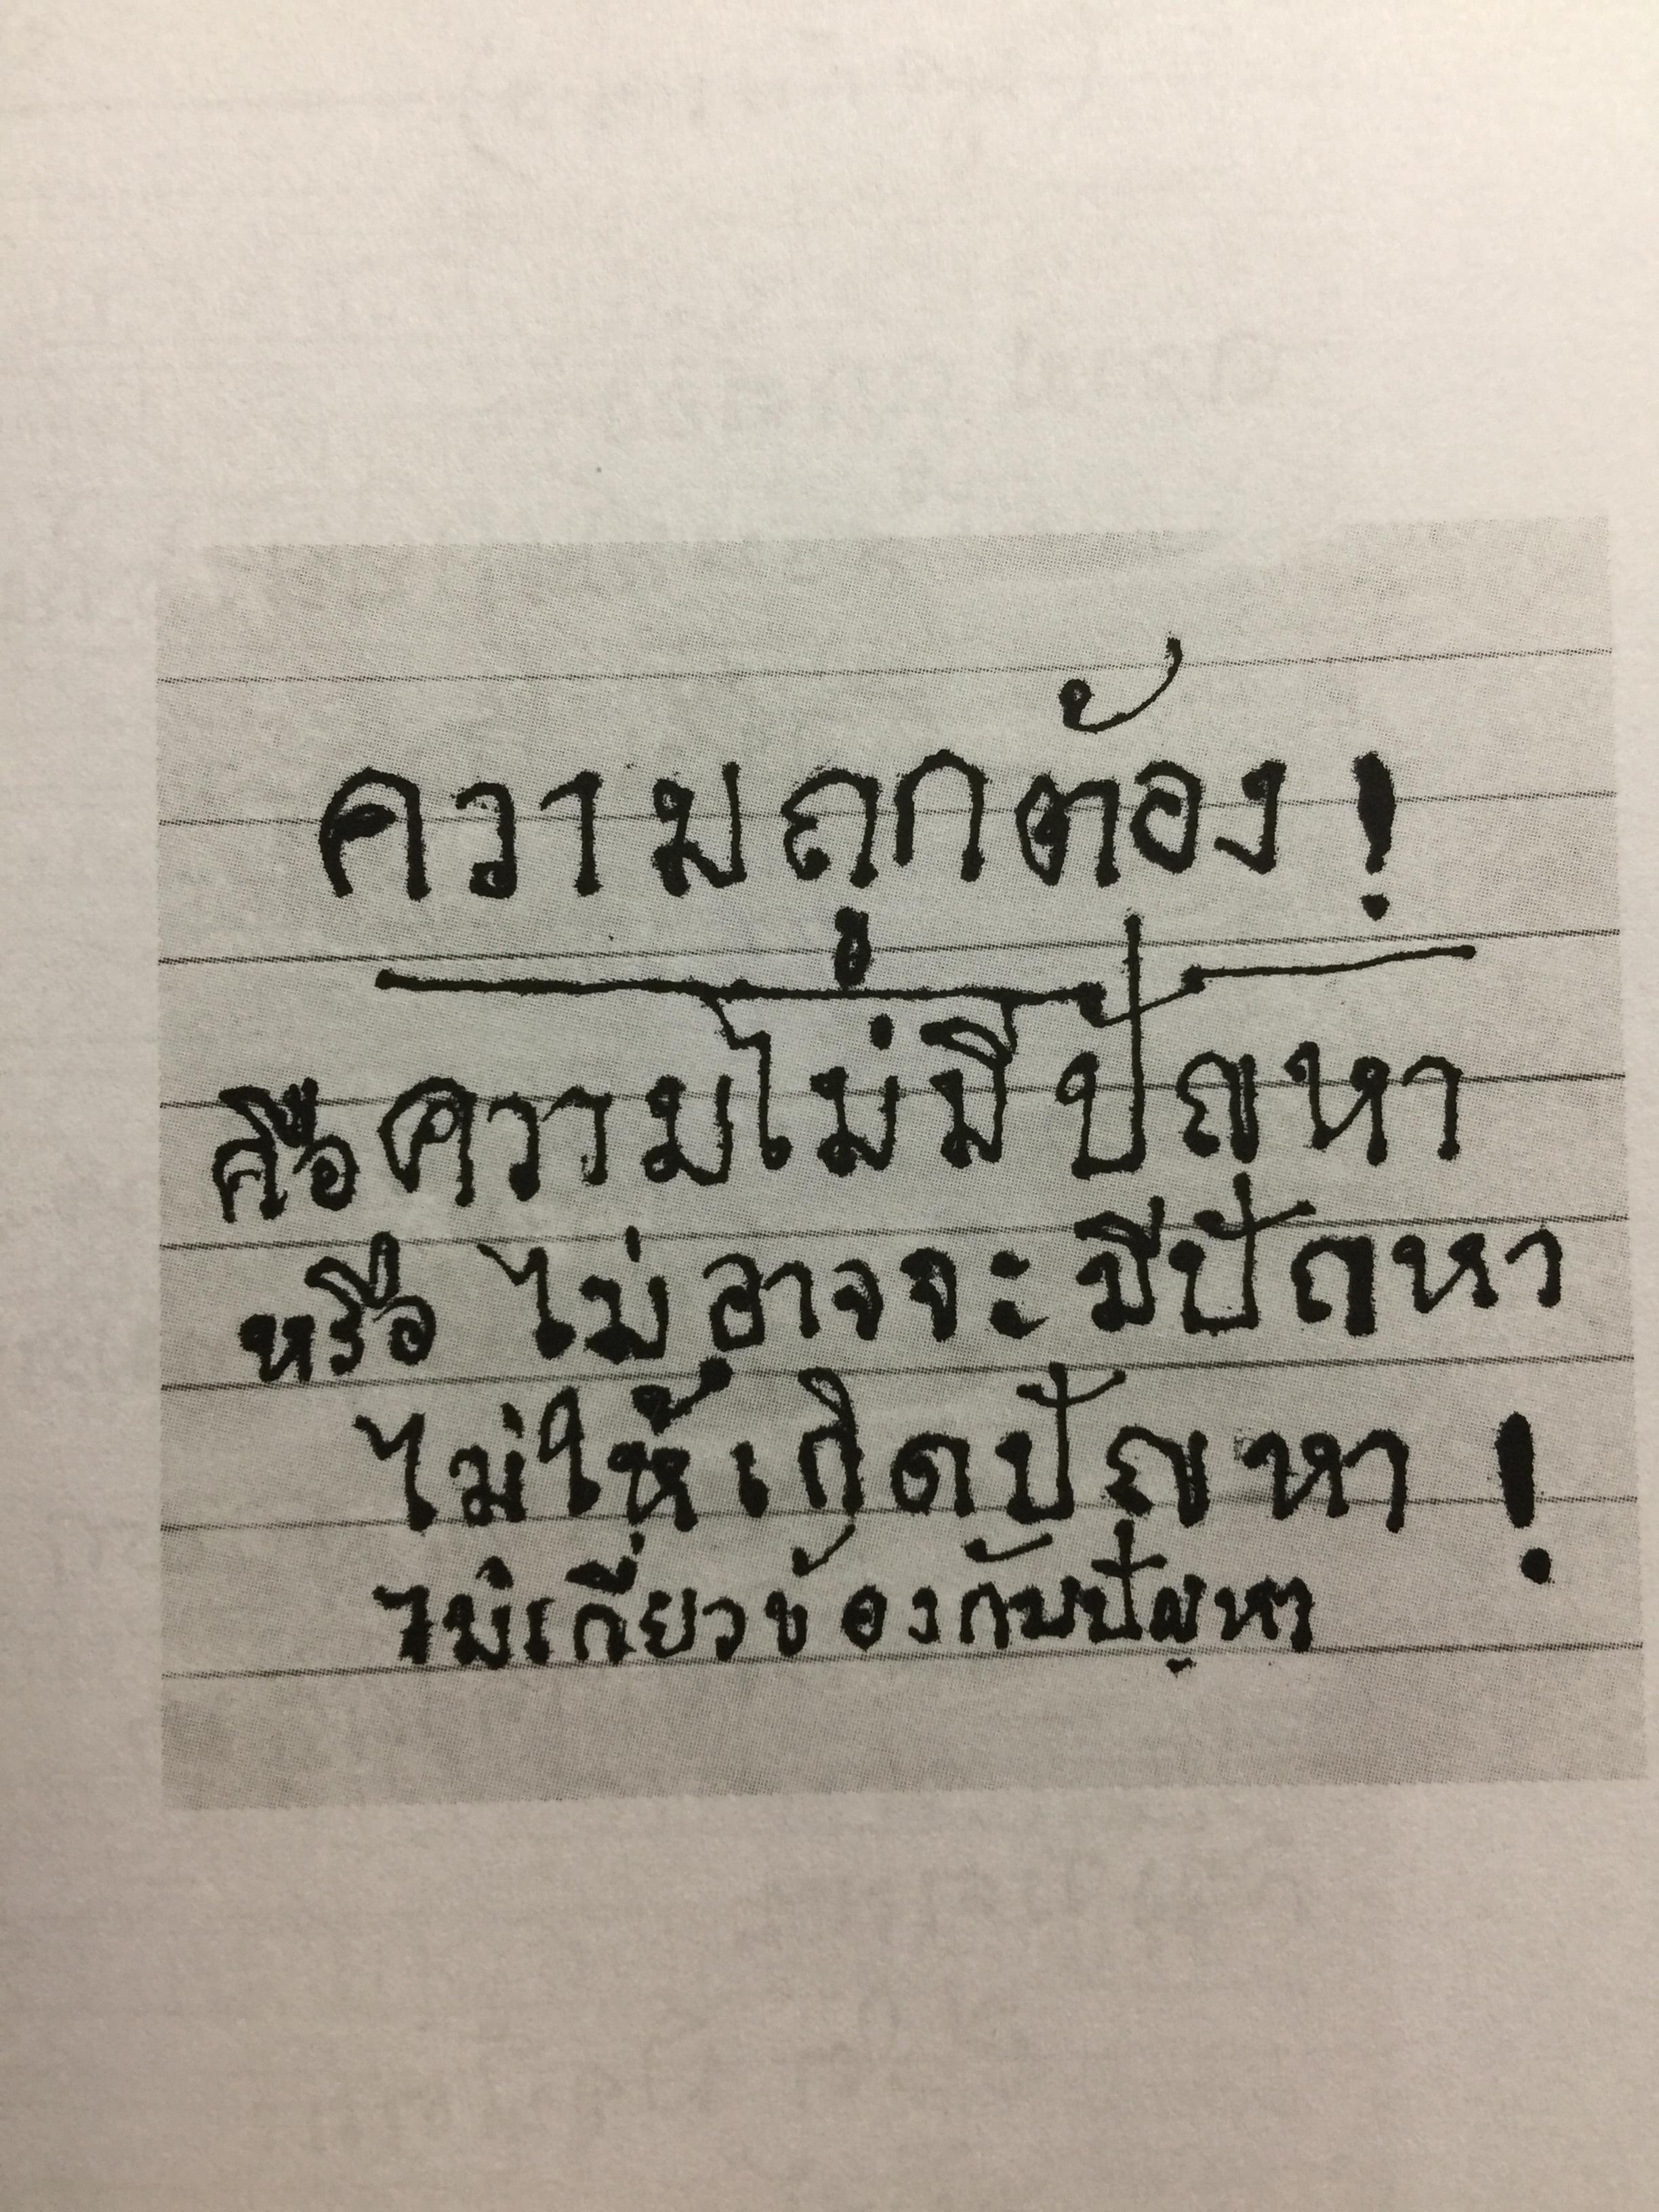 ความถูกต้อง!
คือความไม่มีปัญหา
หรือ ไม่อาจจะมีปัญหา
ไม่ให้เกิดปัญหา!
ไม่เกี่ยวข้องกับปัญหา